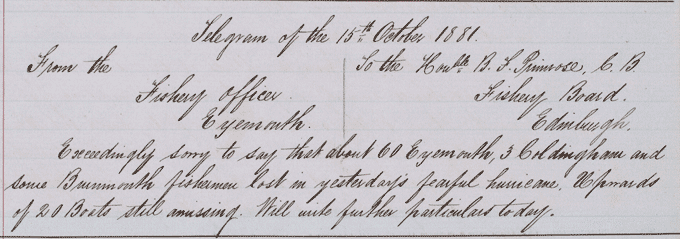 Telegram of the 15th October 1881.
From the
To the Honble B. F. Primrose, C. B.
Fishery Officer.
Fishery Board.
Eyemouth.
Edinburgh.
Exceedingly sorry to say that about 60 Eyemouth, 3 Coldinghame and
some Burnmouth fishermen lost in yesterday's fearful hurricane. Upwards
of 20 Boats still amissing. Will write further particulars to day.